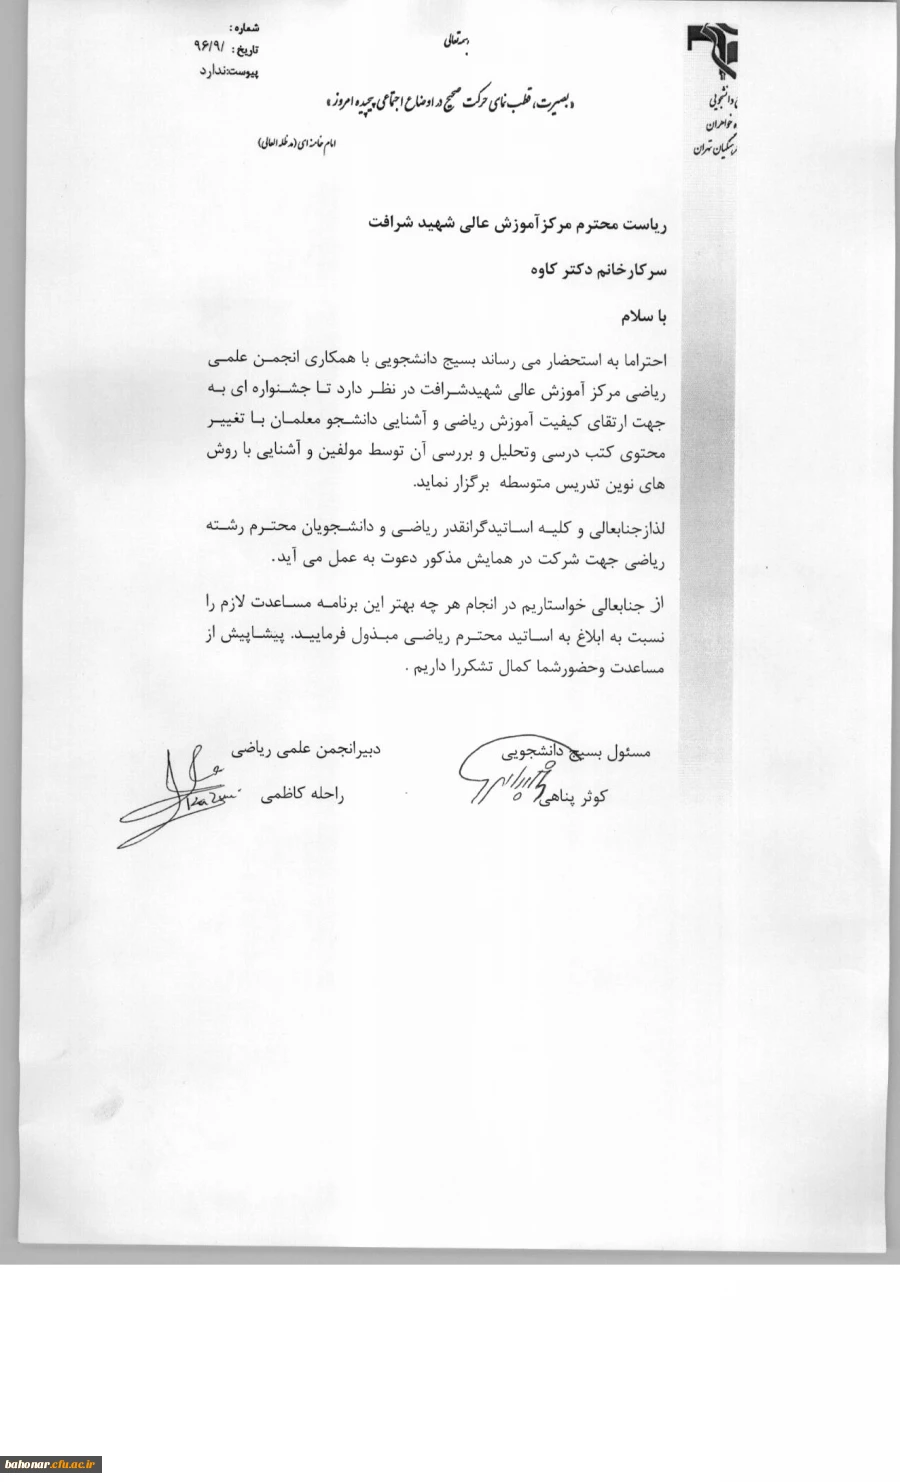 بسمه تعالی
شماره :
تاریخ : ۹۶/۹/
پیوست:ندارد
«بصیرت، قطب نمای حرکت صحیح در اوضاع اجتماعی پیچیده امروز»
امام خامنه ای (مد ظله العالی)
دانشجویی
خواهران
تهران
ریاست محترم مرکزآموزش عالی شهید شرافت
سرکارخانم دکتر کاوه
با سلام
احتراما به استحضار می رساند بسیج دانشجویی با همکاری انجمـن علمـی
ریاضی مرکز آموزش عالی شهیدشـرافت در نظـر دارد تـا جشـنواره ای بـه
جهت ارتقای کیفیت آموزش ریاضی و آشنایی دانشـجو معلمـان بـا تغییـر
محتوی کتب درسی وتحلیل و بررسی آن توسط مولفین و آشنایی با روش
های نوین تدریس متوسطه برگزار نماید.
لذازجنابعالی و کلیـه اسـاتیدگرانقدر ریاضـی و دانشـجویان محتـرم رشـته
ریاضی جهت شرکت در همایش مذکور دعوت به عمل می آید.
از جنابعالی خواستاریم در انجام هر چه بهتر این برنامـه مسـاعدت لازم را
نسبت به ابلاغ به اسـاتید محتـرم ریاضـی مبـذول فرماییـد. پیشـاپیش از
مساعدت وحضورشما کمال تشکررا داریم .
مسئول بسیج دانشجویی
دبیرانجمن علمی ریاضی
کوثر پناهی
راحله کاظمی
Kazemi
bahonar.cfu.ac.ir